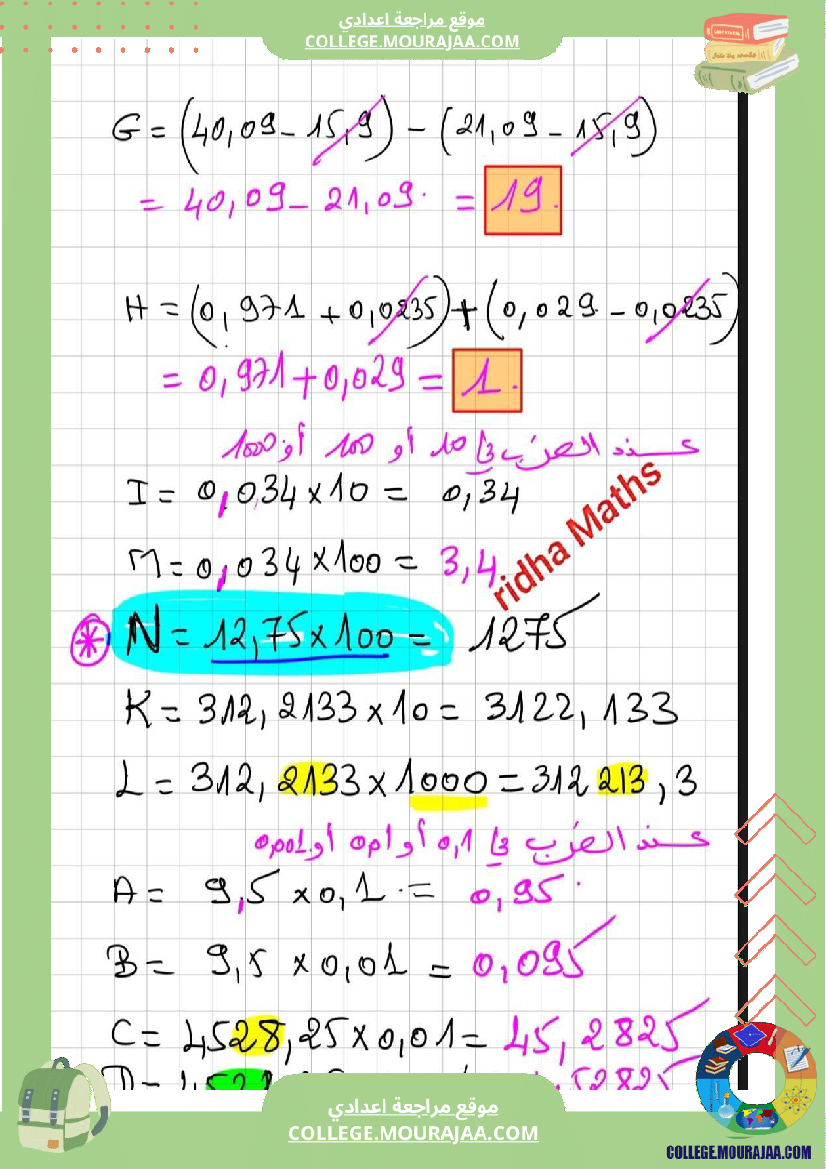 موقع مراجعة اعدادي
COLLEGE.MOURAJAA.COM
G = (40,09 - 15,9) - (21,09 - 15,9)
= 40,09 - 21,09 = 19.
H = (0,971 + 0,0235) + (0,029 - 0,0235)
= 0,971 + 0,029 = 1.
عند الضرب في 10 أو 100 أو 1000
I = 0,034 × 10 = 0,34
M = 0,034 × 100 = 3,4
ridha Maths
N = 12,75 × 100 = 1275
K = 312,2133 × 10 = 3122,133
L = 312,2133 × 1000 = 312 213,3
عند الضرب في 0,1 أو 0,01 أو 0,001
A = 9,5 × 0,1 = 0,95
B = 9,5 × 0,01 = 0,095
C = 4528,25 × 0,01 = 45,2825
موقع مراجعة اعدادي
COLLEGE.MOURAJAA.COM
COLLEGE.MOURAJAA.COM